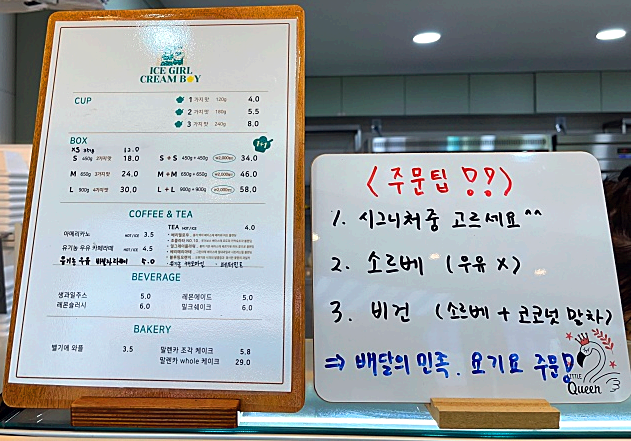 ICE GIRL
CREAM BOY
CUP
1 가지 맛 120g 4.0
2 가지 맛 180g 5.5
3 가지 맛 240g 8.0
BOX
XS 12.0
S 450g 2가지맛 18.0
M 650g 3가지맛 24.0
L 900g 4가지맛 30.0
S + S 450g + 450g 34.0
M + M 650g + 650g 46.0
L + L 900g + 900g 58.0
COFFEE & TEA
아메리카노 HOT / ICE 3.5
유기농 우유 카페라떼 HOT / ICE 4.5
유기농 우유 바닐라라떼 5.0
TEA HOT / ICE 4.0
BEVERAGE
생과일주스 5.0
레몬슬러시 6.0
레몬에이드 5.0
밀크쉐이크 6.0
BAKERY
벨기에 와플 3.5
말렌카 조각 케이크 5.8
말렌카 whole 케이크 29.0
<주문팁 !?>
1. 시그니처 중 고르세요^^
2. 소르베 (우유 X)
3. 비건 (소르베 + 코코넛 말차)
⇒ 배달의 민족. 요기요 주문!
LITTLE
Queen